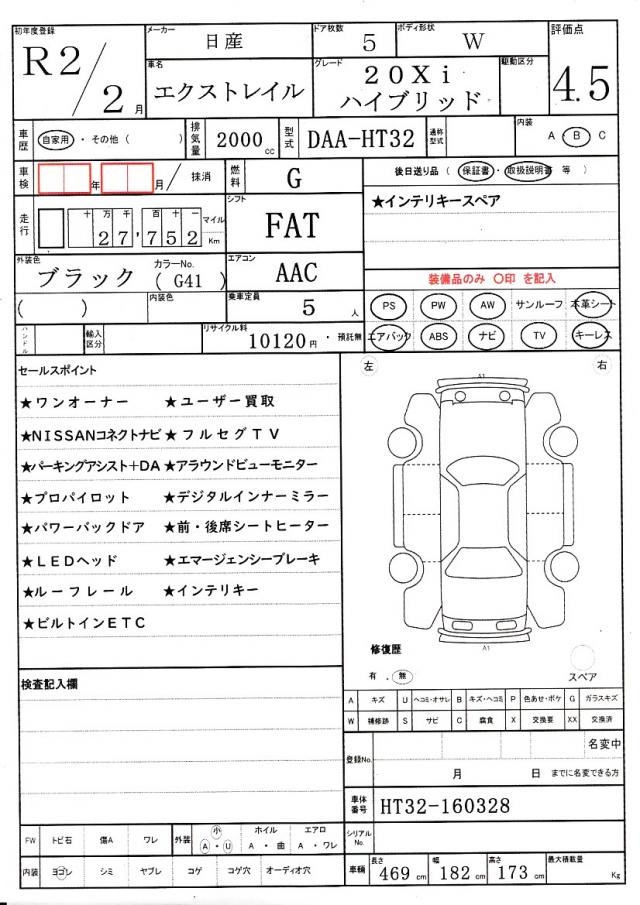 初年度登録 メーカー ドア枚数 ボディ形状 評価点
R2/2月 日産 5 W 4.5
車名 グレード 駆動区分
エクストレイル 20Xi ハイブリッド
車歴 自家用・その他( ) 排気量 2000cc 型式 DAA-HT32 通称型式 内装 A B C
車検 年 月/ 抹消 燃料 G 後日送り品(保証書・取扱説明書 等)
走行 十万千百十一 27,752 マイル Km シフト FAT ★インテリキースペア
外装色 ブラック カラーNo. (G41) エアコン AAC 装備品のみ 〇印 を記入
( ) 内装色 乗車定員 5人 PS PW AW サンルーフ 本革シート
ハンドル 輸入区分 リサイクル料 10120円・預託無 エアバック ABS ナビ TV キーレス
セールスポイント 左 右
A1
★ワンオーナー ★ユーザー買取
★NISSANコネクトナビ ★フルセグTV
★パーキングアシスト+DA ★アラウンドビューモニター
★プロパイロット ★デジタルインナーミラー
★パワーバックドア ★前・後席シートヒーター
★LEDヘッド ★エマージェンシーブレーキ
★ルーフレール ★インテリキー
★ビルトインETC
A1
修復歴
有 . 無 スペア
検査記入欄
A キズ U ヘコミ・オサレ B キズ・ヘコミ P 色あせ・ボケ G ガラスキズ
W 補修跡 S サビ C 腐食 X 交換要 XX 交換済
登録No. 名変中
月 日 までに名変できる方
車体番号 HT32-160328
FW トビ石 傷A ワレ 外装 小 A・U ホイル A・曲 エアロ A・ワレ シリアルNo.
内装 ヨゴレ シミ ヤブレ コゲ コゲ穴 オーディオ穴 車輌 長さ 469cm 幅 182cm 高さ 173cm 最大積載量 Kg